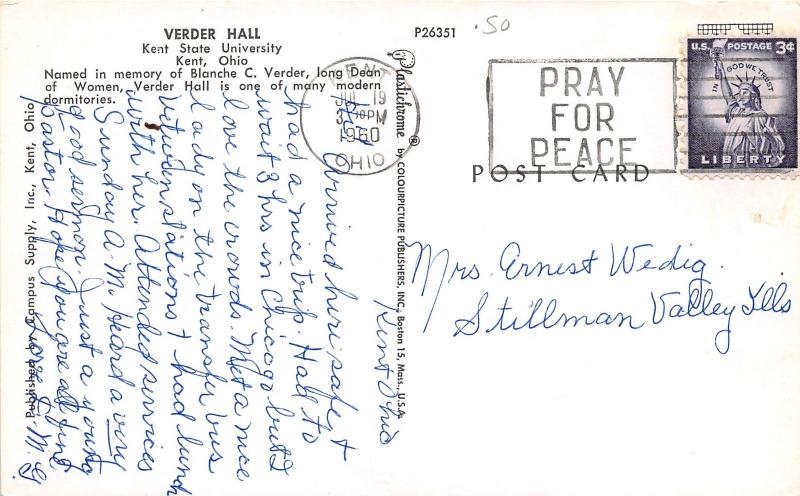 VERDER HALL
Kent State University
Kent, Ohio
Named in memory of Blanche C. Verder, long Dean
of Women, Verder Hall is one of many modern
dormitories.
P26351
.50
KENT
JUL 19
10 PM
1960
OHIO
PRAY
FOR
PEACE
U.S. POSTAGE 3¢
IN GOD WE TRUST
LIBERTY
POST CARD
Plastichrome ® by COLOURPICTURE PUBLISHERS, INC., Boston 15, Mass., U.S.A.
Published by Campus Supply, Inc., Kent, Ohio
Kent Ohio
Arrived here safely &
had a nice trip. Had to
wait 3 hrs in Chicago but I
love the crowds. Met a nice
lady on the transfer bus
between stations & had lunch
with her. Attended services
Sunday A.M. Heard a very
good sermon. Just a young
Pastor. Hope you are all fine
Love
Mrs. Ernest Wedig.
Stillman Valley Ills